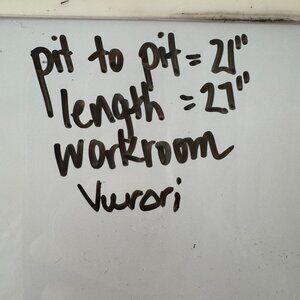 pit to pit = 21"
length = 27"
workroom
Vuori